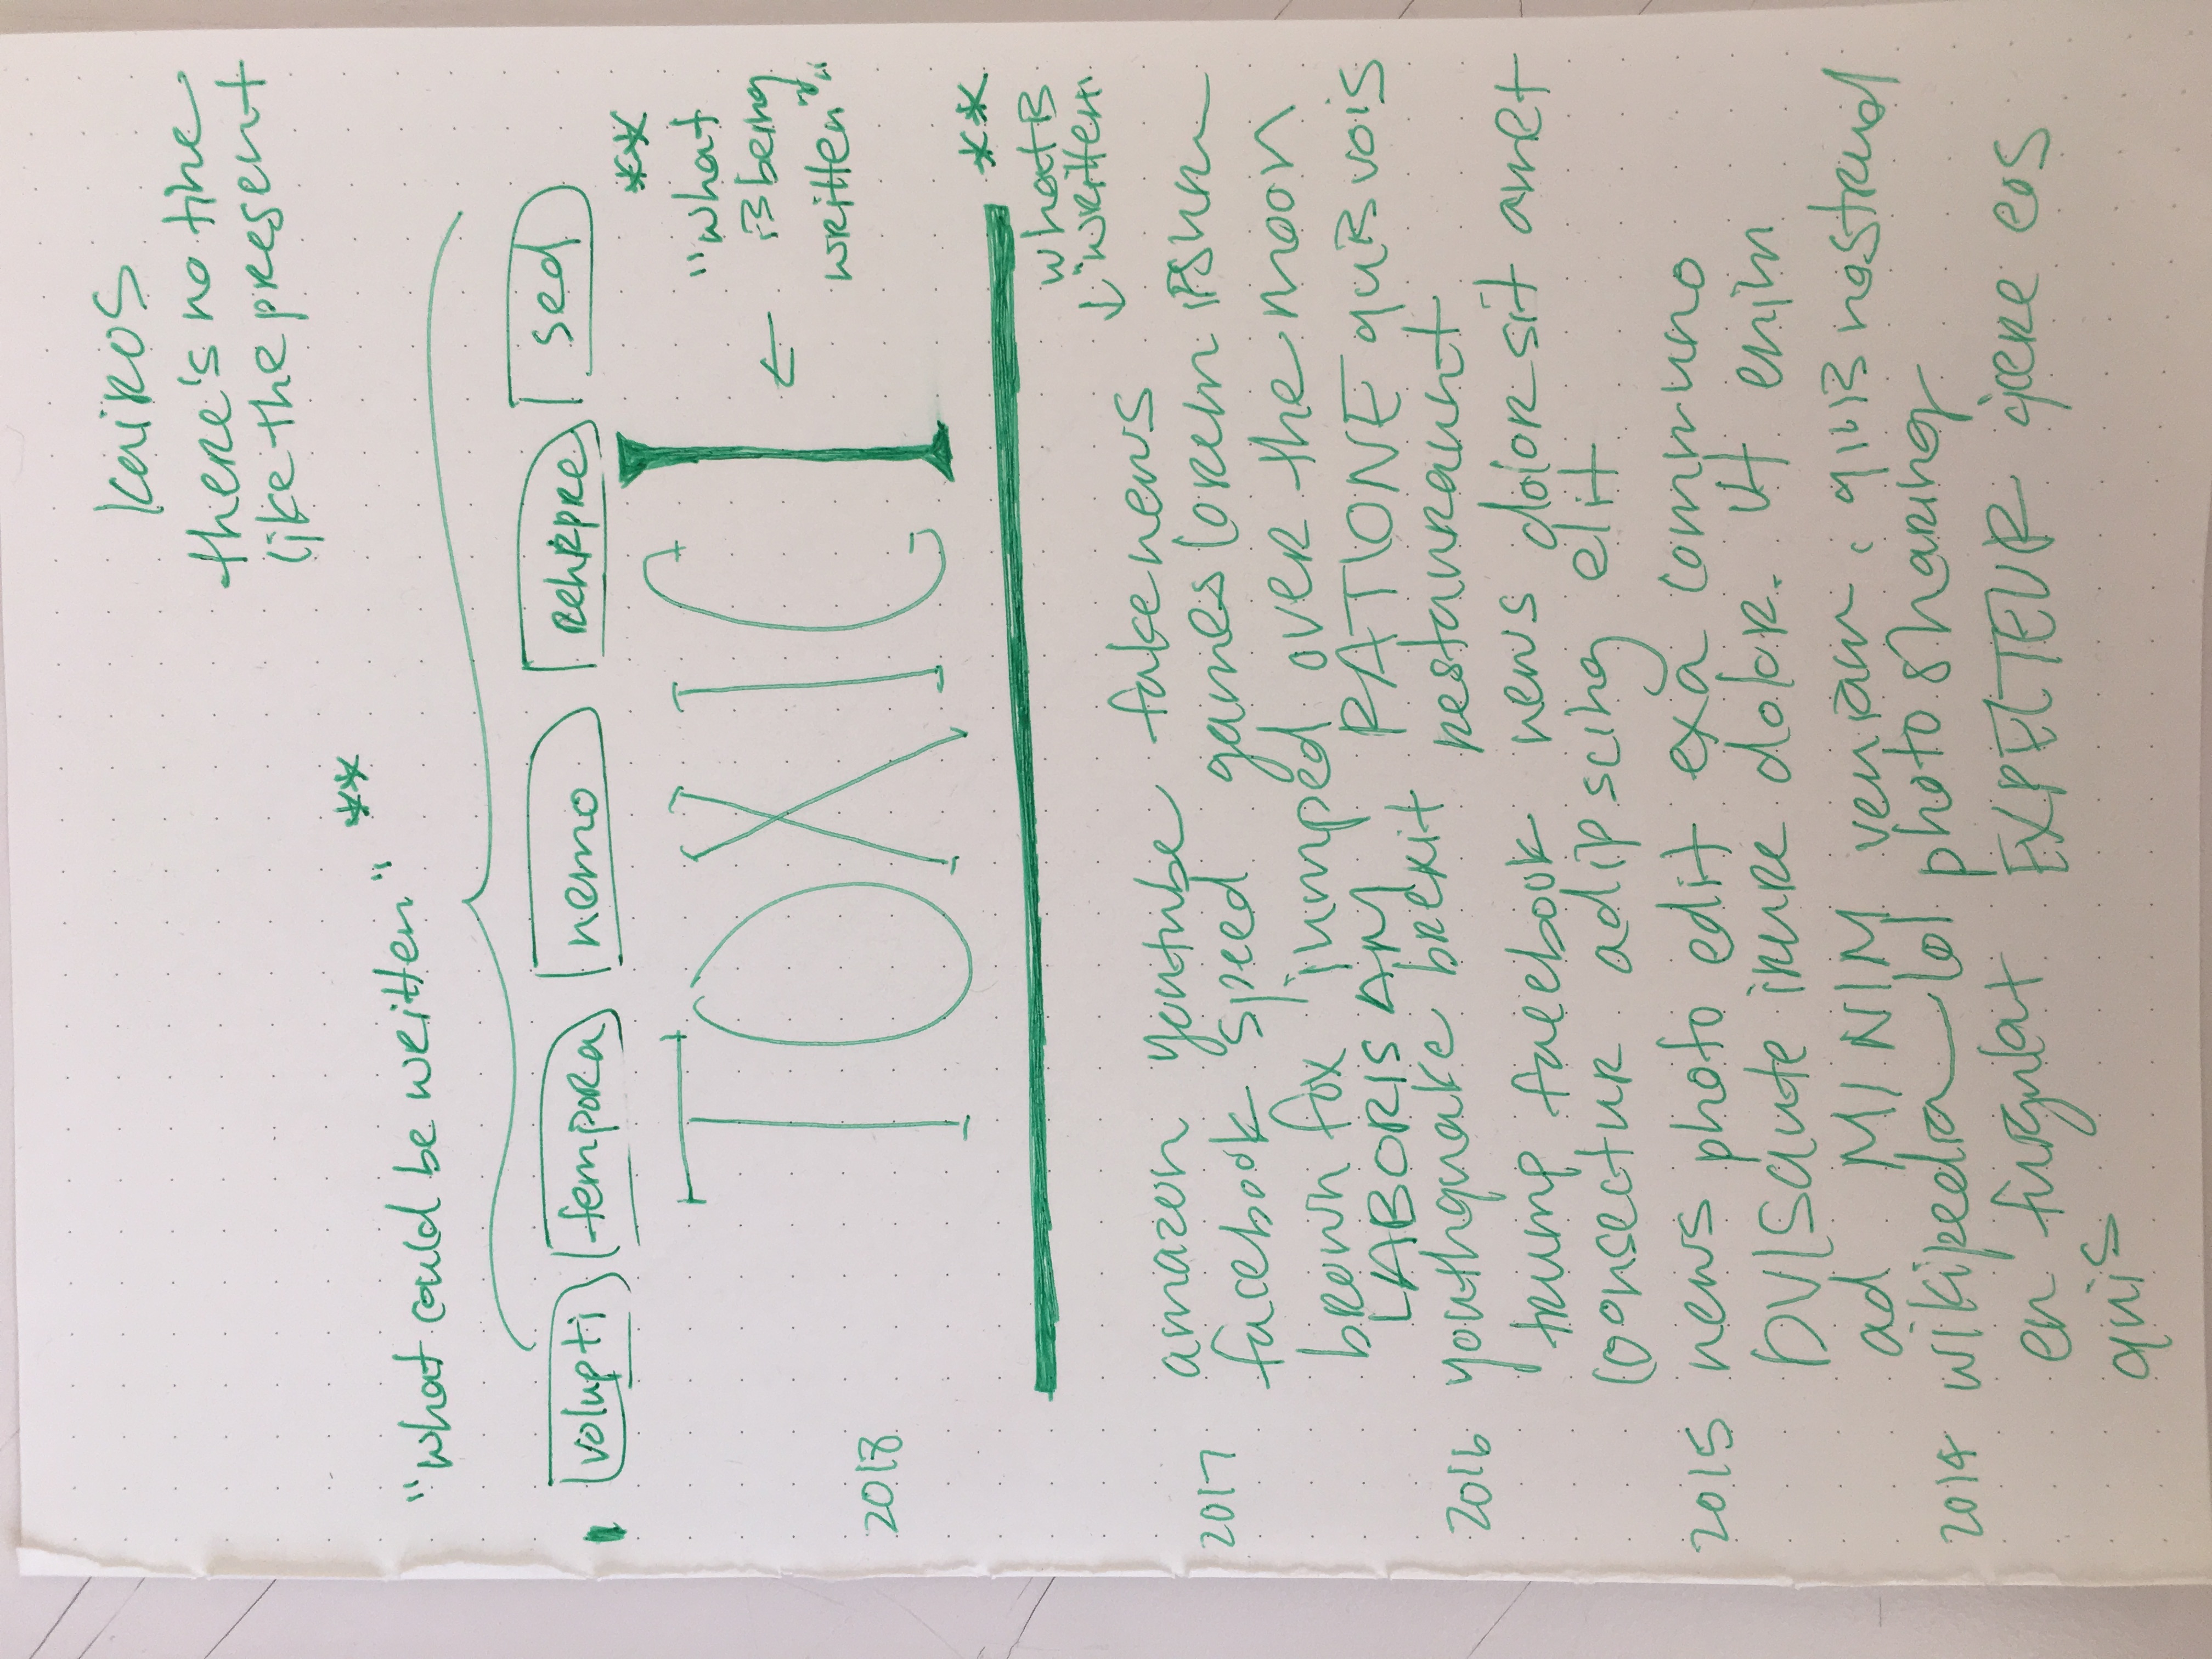 KaiROS
there's no time
like the present
"what could be written" **
volupti tempora nemo rehrpre sed
**
"what
is being
written"
TOXIC
2018
**
what is
"written"
amazon youtube fake news
2017
facebook speed games lorem ipsum
brown fox jumped over the moon
LABORISAM RATIONE quis vois
2016 youthquake brexit restauraunt
trump facebook news dolor sit amet
coonsectur adipscing elit
2015 news photo edit exa communo
DVISaute irure dolor. Ut enim
ad MINIM veniam, quis nostrud
2014 wikipedia lol photo sharing
en EXPECTEUR eos
quis